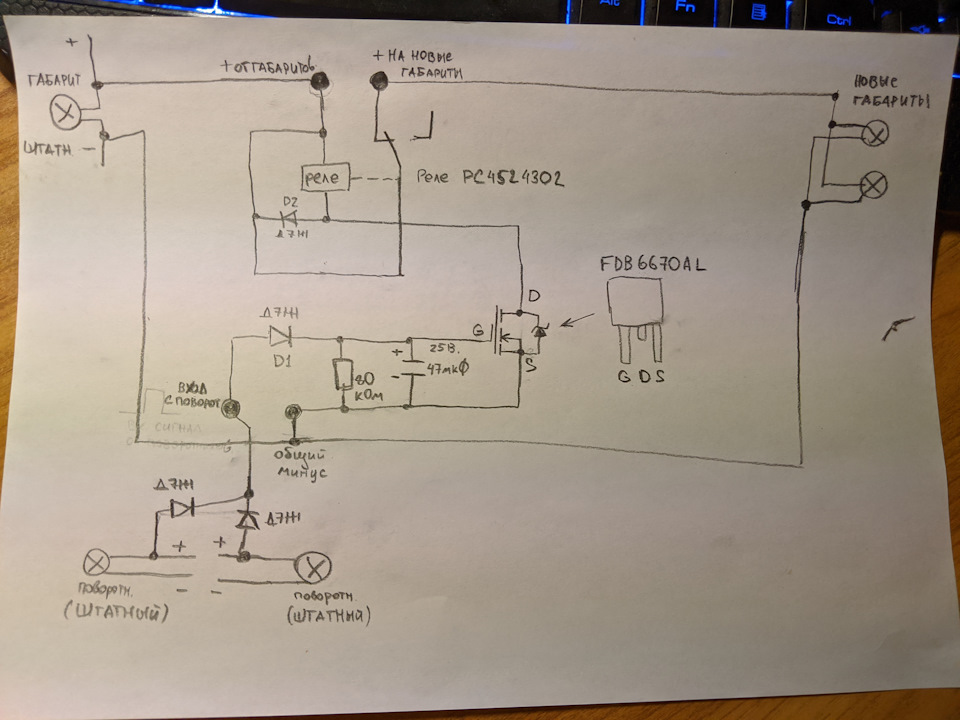 Alt
Fn
Ctrl
+
ГАБАРИТ
ШТАТН.
-
+ОТ ГАБАРИТОВ
+ НА НОВЫЕ
ГАБАРИТЫ
НОВЫЕ
ГАБАРИТЫ
реле
Реле РС4524302
D2
Д7Ж
FDB6670AL
D
G
S
G D S
Д7Ж
D1
80
кОм
+
25В.
47мкФ
-
ВХОД
С ПОВОРОТ
СИГНАЛ
общий
минус
Д7Ж
Д7Ж
+
+
-
-
поворотн.
(ШТАТНЫЙ)
поворотн.
(ШТАТНЫЙ)